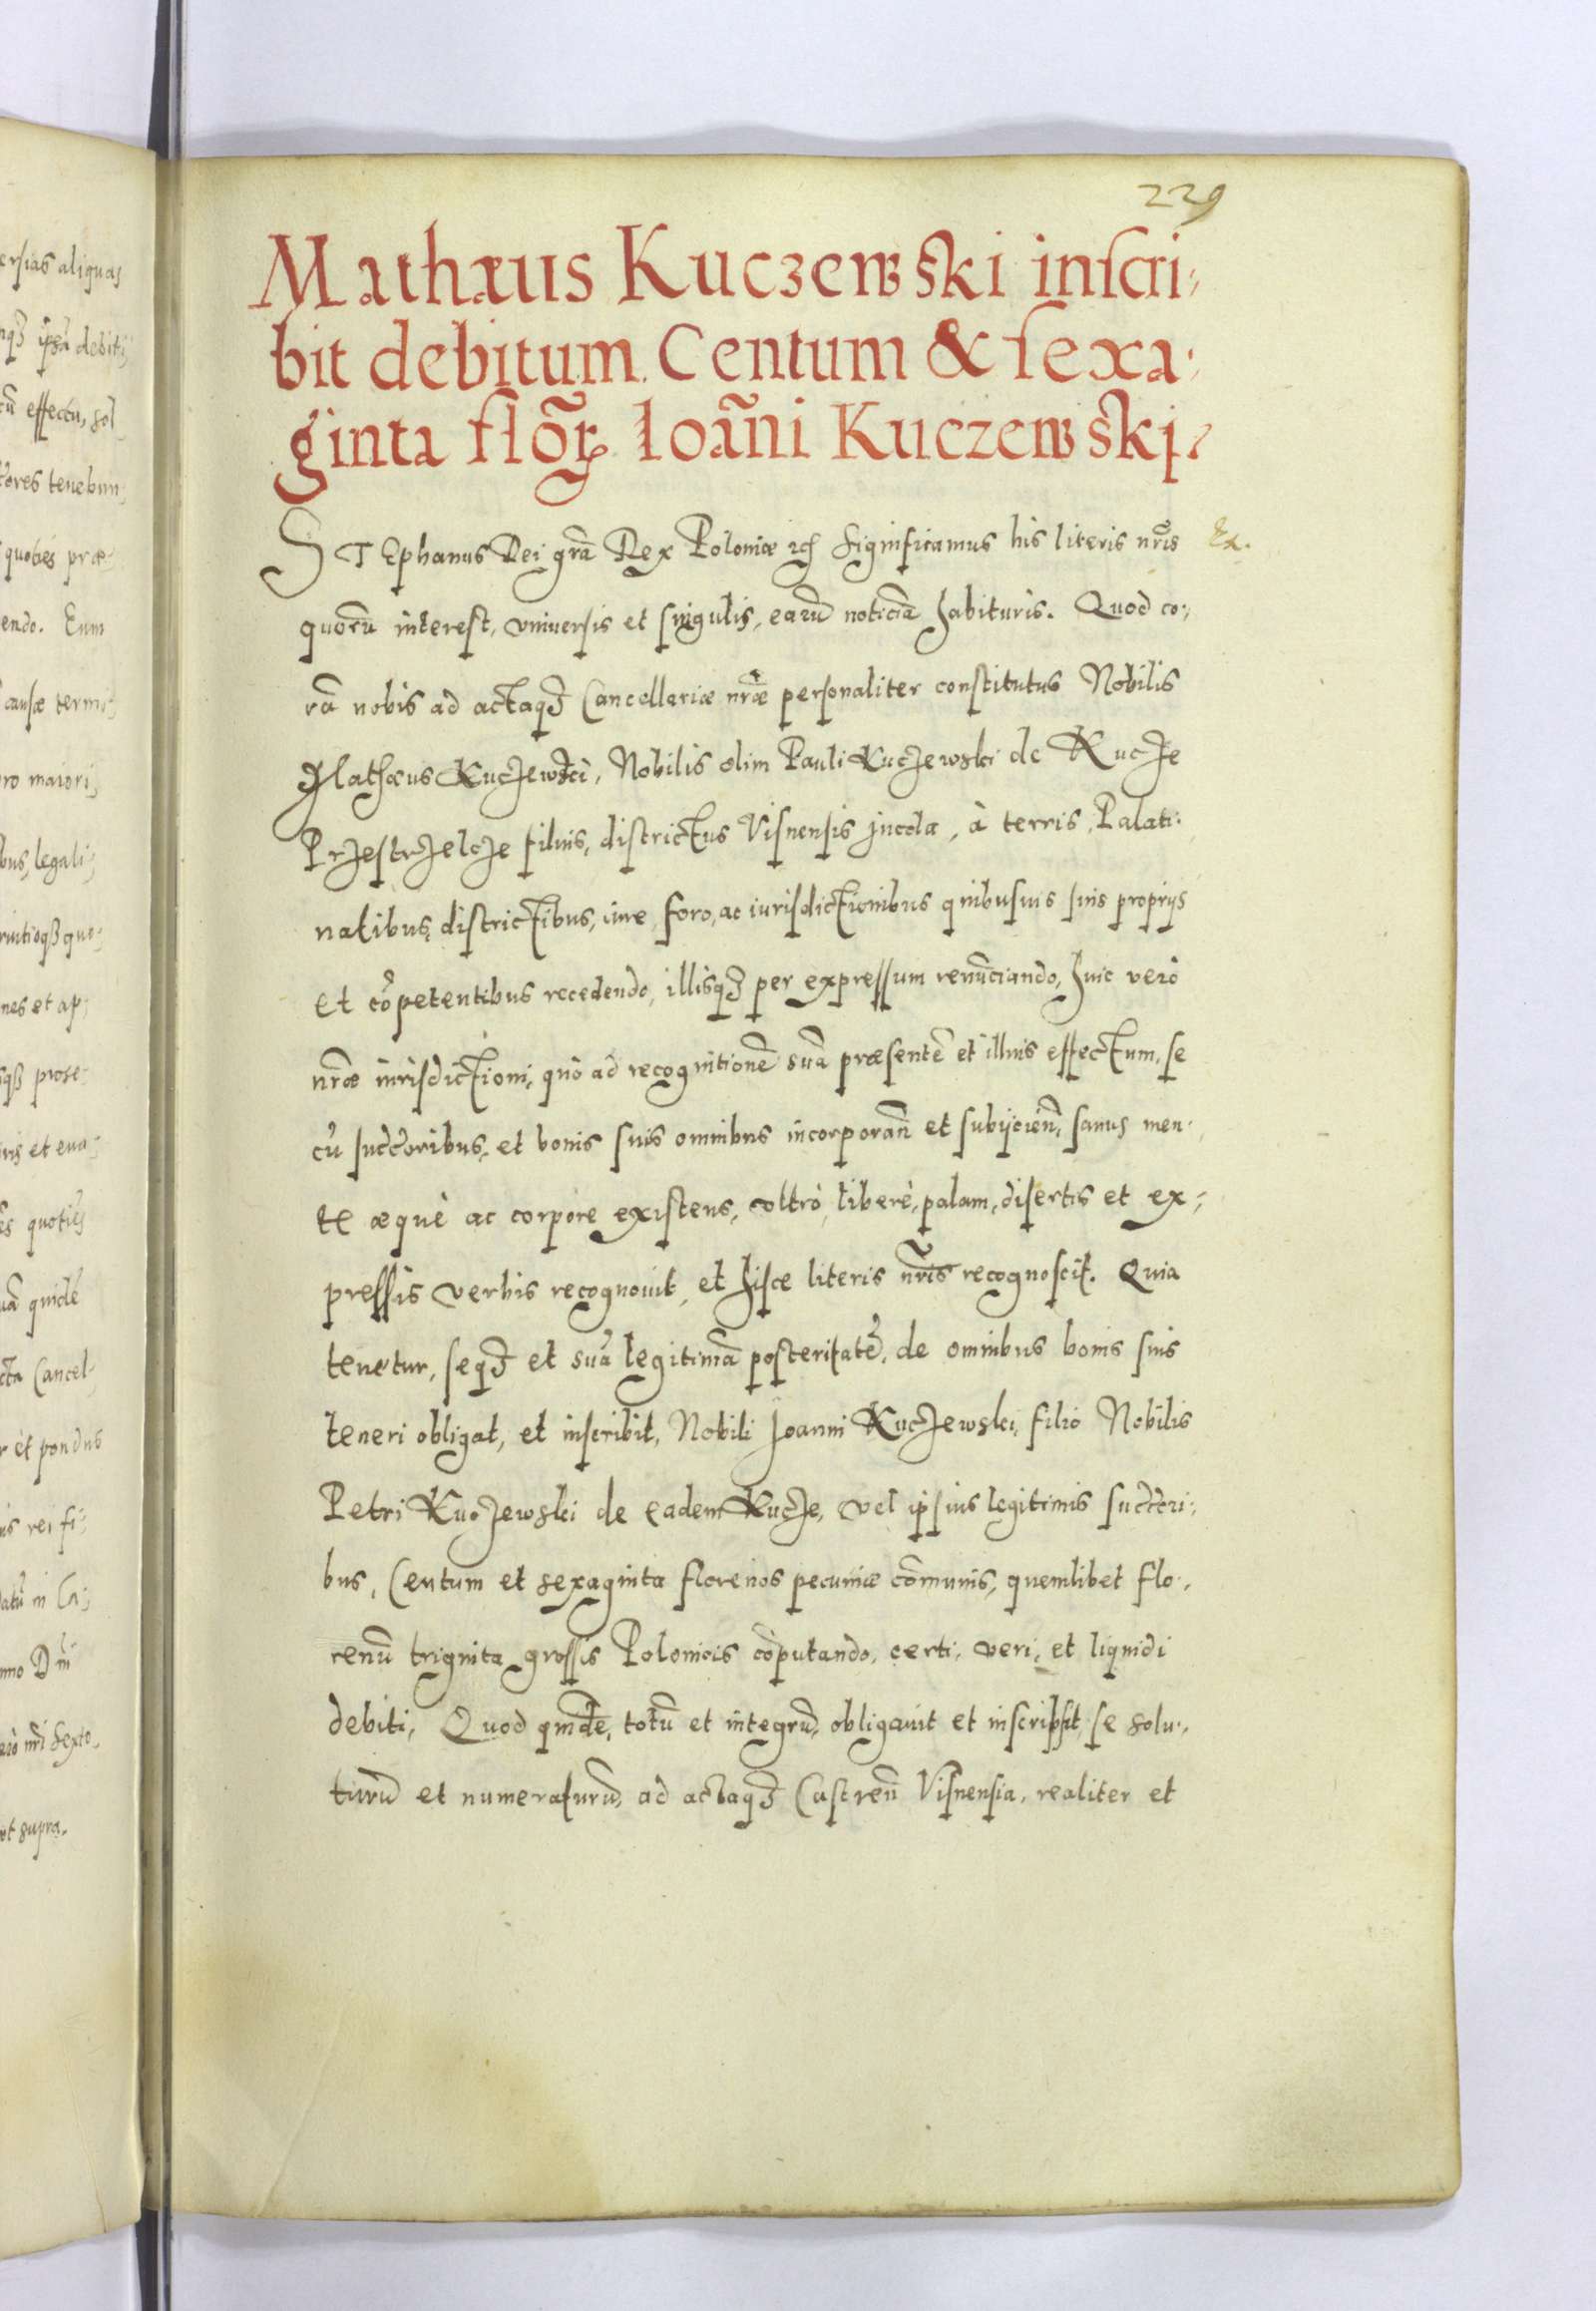 229
Mathæus Kuczewski inscri-
bit debitum Centum & sexa-
ginta flor̃ꝝ Ioãni Kuczewski.
STEphanus Dei grã Rex Poloniæ etc Significamus his literis nr̃is
Ex.
quorũ interest, vniuersis et singulis, earũ noticiã habituris. Quod co-
rã nobis ad actaqʒ Cancellariæ nr̃æ personaliter constitutus Nobilis
Mathæus Kuczewski, Nobilis olim Pauli Kuczewski de Kucze
Przestrzelcze filius, districtus Visnensis incola, à terris, Palati-
natibus, districtibus, iure, foro, ac iurisdictionibus quibusuis suis proprijs
et cõpetentibus recedendo, illisqʒ per expressum renũciando, huic verò
nr̃æ iurisdictioni, quò ad recognitionẽ suã præsentẽ et illius effectum, se
cũ succ̃oribus, et bonis suis omnibus incorporañ et subijcieñ, sanus men-
te æquè ac corpore existens, vltrò, liberè, palam, disertis et ex-
pressis verbis recognouit, et hisce literis nr̃is recognoscit. Quia
tenetur, seqʒ et suã legitimã posteritatẽ, de omnibus bonis suis
teneri obligat, et inscribit, Nobili Joanni Kuczewski, filio Nobilis
Petri Kuczewski de eadem Kucze, vel ipsius legitimis succ̃ori-
bus, Centum et sexaginta florenos pecuniæ cõmunis, quemlibet flo-
renũ triginta grossis Polonicis cõputando, certi, veri, et liquidi
debiti, Quod quidẽ, totũ et integrũ, obligauit et inscripsit, se solu-
turũ et numeraturũ, ad actaqʒ Castreñ Visnensia, realiter et
ersias aliquas
debiti
effectu, sol
tores tenebun
quoties præ-
endo. Eum
causæ termi
ro maiori
bus, legali
nes et ap
prose-
ris et eua-
quoties
quidẽ
cta Cancel-
r et pondus
is rei fi-
sexto
vt supra.